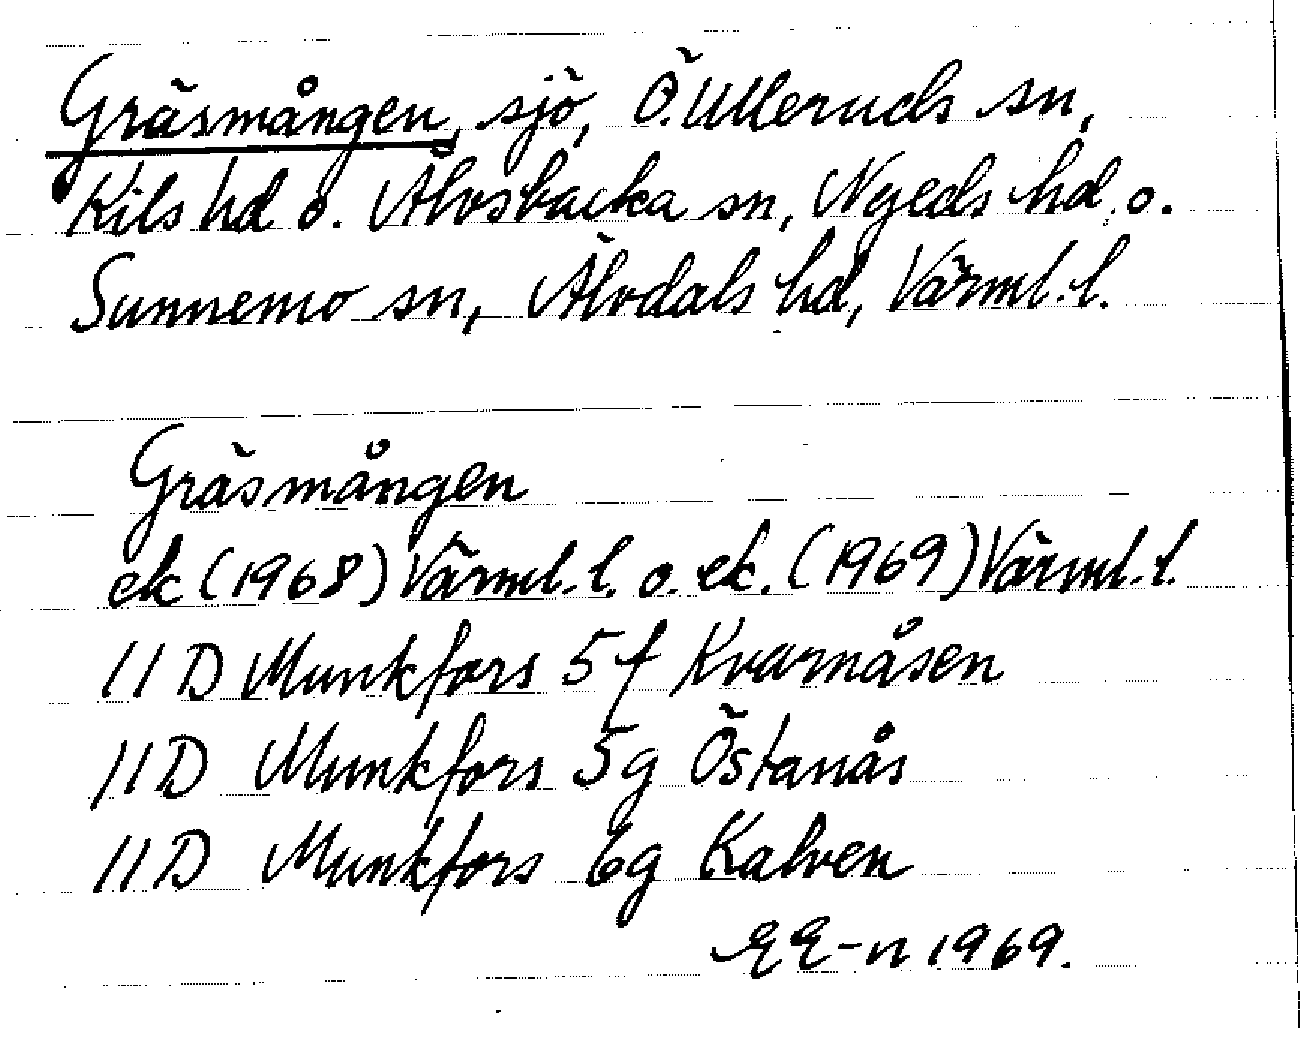 Gräsmången, sjö, Ö. Ulleruds sn,
Kils hd o. Älvsbacka sn, Nyeds hd o.
Sunnemo sn, Älvdals hd, Värml. l.
Gräsmången
ek (1968) Värml. l. o. ek. (1969) Värml. l.
11 D Munkfors 5 f Kvarnåsen
11D Munkfors 5g Östanås
11D Munkfors 6g Kalven
EE-n 1969.